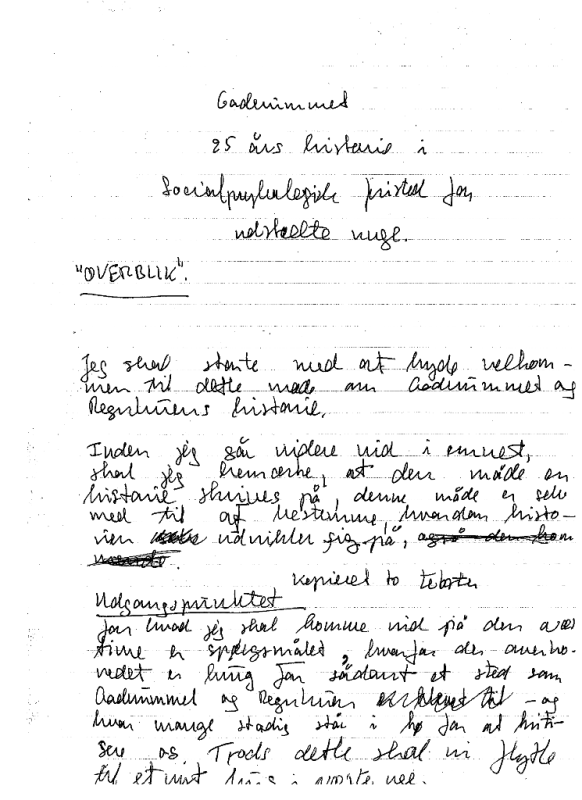 Gaderummet
25 års historie i
Socialpsykologisk fristed for
udstødte unge.
"OVERBLIK".
Jeg skal starte med at byde velkom-
men til dette møde om Gaderummet og
Regnbuens historie.
Inden jeg går videre ind i emnet,
skal jeg bemærke, at den måde en
historie skrives på, denne måde er selv
med til at bestemme, hvordan histo-
rien udvikler sig på, også den kom
kopieret to
Udgangspunktet
for hvad jeg skal komme ind på den næs
time er spørgsmålet, hvorfor der overho-
vedet er brug for sådant et sted som
Gaderummet og Regnbuen - og
hvor mange stadig står i kø for at kriti-
sere os. Trods dette skal vi flytte
til et nyt hus i næste uge.